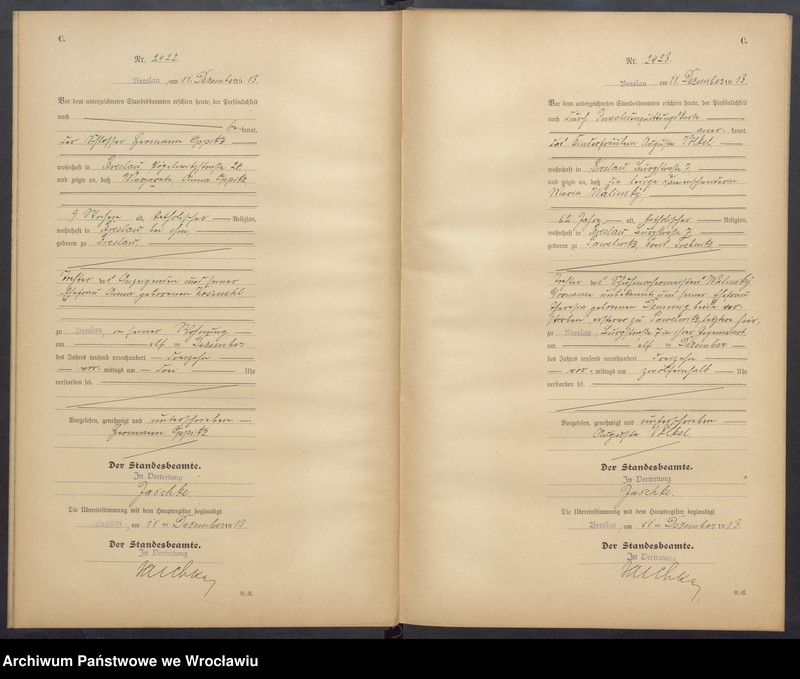 C.
Nr. 2422
Breslau, am 11. Dezember 1913.
Vor dem unterzeichneten Standesbeamten erschien heute, der Persönlichkeit
nach be-kannt,
der Schlosser Hermann Oppitz
wohnhaft in Breslau,
und zeigte an, daß Margarete Anna Oppitz,
9 Wochen alt, katholischer Religion,
wohnhaft in Breslau bei ihm,
geboren zu Breslau,
Tochter des Anzeigenden und seiner
Ehefrau Anna geborenen
zu Breslau, in seiner Wohnung
am elf ten Dezember
des Jahres tausend neunhundert dreizehn
vor-mittags um drei Uhr
verstorben sei.
Vorgelesen, genehmigt und unterschrieben
Hermann Oppitz
Der Standesbeamte.
In Vertretung
Jaschke.
Die Übereinstimmung mit dem Hauptregister beglaubigt
Breslau, am 11ten Dezember 1913.
Der Standesbeamte.
In Vertretung
Jaschke
C.
Nr. 2423.
Breslau, am 11. Dezember 1913.
Vor dem unterzeichneten Standesbeamten erschien heute, der Persönlichkeit
nach durch anerkannt,
das Kinderfräulein Auguste Völkel
wohnhaft in Breslau Burgstraße 7
und zeigte an, daß die ledige
Maria Walinsky,
62 Jahre alt, katholischer Religion,
wohnhaft in Breslau Burgstraße 7,
geboren zu Pawelwitz, Kreis Trebnitz
Tochter des Schuhmachermeisters Walinsky,
Vorname unbekannt, und seiner Ehefrau
Theresia geborenen beide ver-
storben, ersterer zu Pawelwitz, letztere hier,
zu Breslau, Burgstraße 7 in ihrer Gegenwart,
am elf ten Dezember
des Jahres tausend neunhundert dreizehn
vor-mittags um zwölfeinhalb Uhr
verstorben sei.
Vorgelesen, genehmigt und unterschrieben
Auguste Völkel.
Der Standesbeamte.
In Vertretung
Jaschke.
Die Übereinstimmung mit dem Hauptregister beglaubigt
Breslau, am 11ten Dezember 1913.
Der Standesbeamte.
In Vertretung
Jaschke
Archiwum Państwowe we Wrocławiu